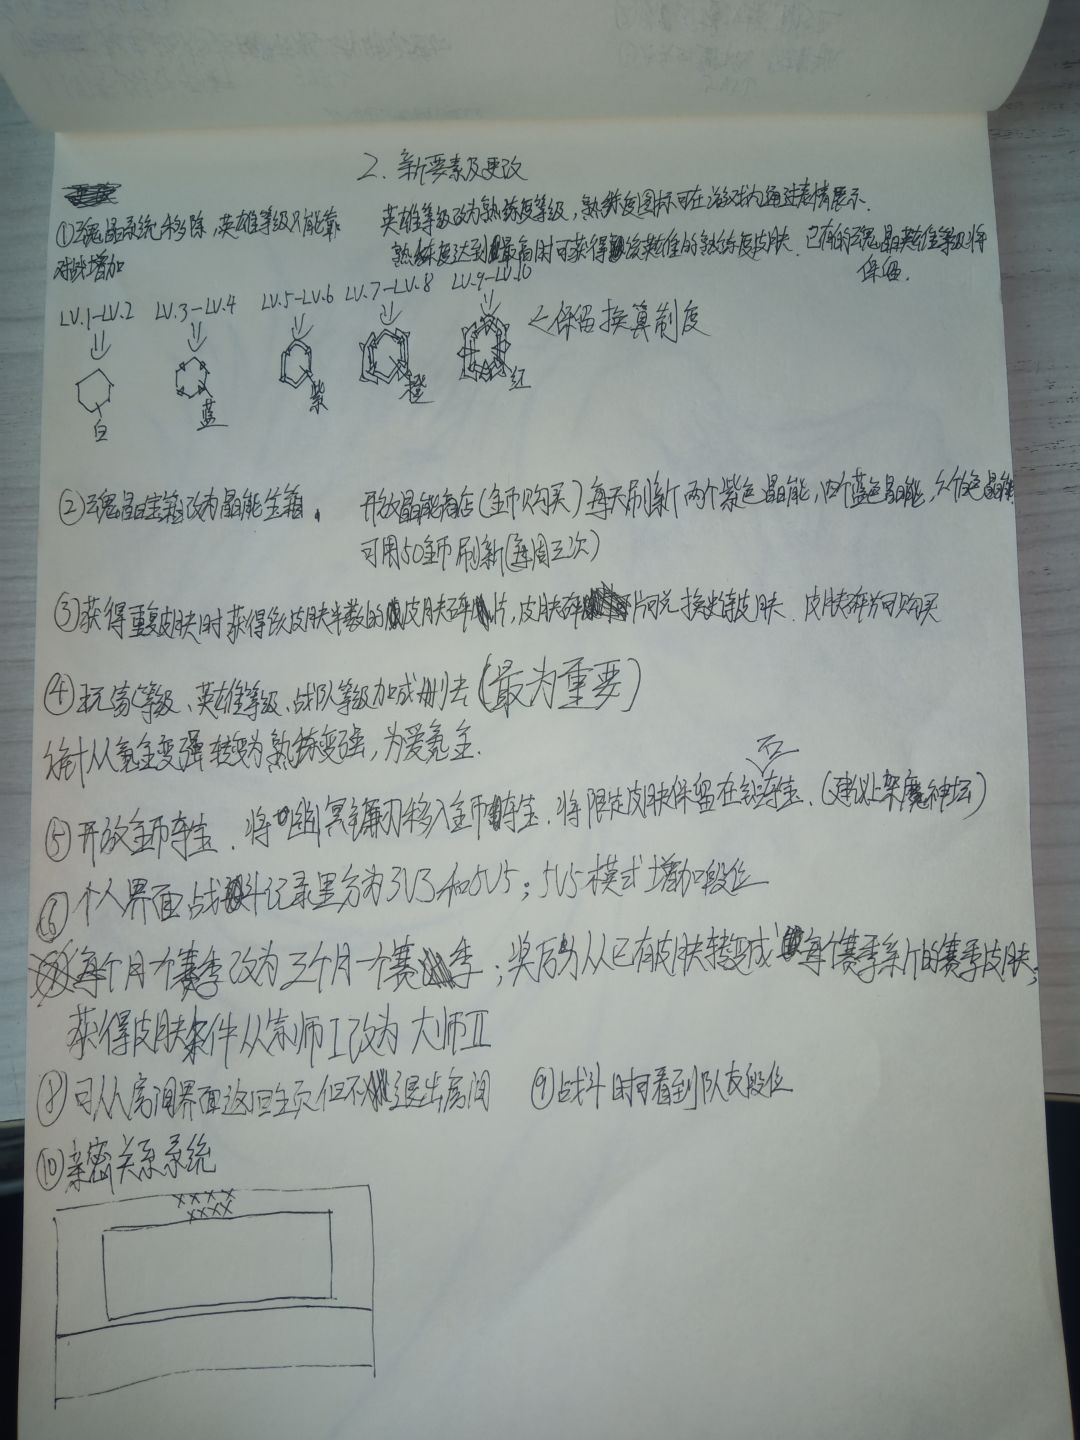 2. 新要素及更改
①魂晶系统移除，英雄等级只能靠
对战增加
英雄等级改为熟练度等级，熟练度图标可在游戏内通过表情展示.
熟练度达到最高时可获得该英雄的熟练度皮肤. 已有的魂晶英雄等级将
保留.
LV.1-LV.2 LV.3-LV.4 LV.5-LV.6 LV.7-LV.8 LV.9-LV.10
<保留换算制度
白 蓝 紫 橙 红
②魂晶宝箱改为晶能宝箱.
开放晶能商店(金币购买)每天刷新两个紫色晶能,四个蓝色晶能,
可用50金币刷新(每周三次)
③获得重复皮肤时获得该皮肤半数的皮肤碎片,皮肤碎片可兑换史诗皮肤. 皮肤碎片可购买
④玩家等级、英雄等级、战队等级加成删去(最为重要)
从氪金变强转变为熟练变强,为爱氪金.
⑤开放金币夺宝. 将幽冥镰刃移入金币夺宝. 将限定皮肤保留在钻石夺宝. (建议上架魔神坛)
⑥个人界面战斗记录里分为3V3和5V5；5V5模式增加段位
⑦每个月一个赛季改为三个月一个赛季；奖励从已有皮肤转变成每个赛季系列的赛季皮肤；
获得皮肤条件从宗师I改为大师II
⑧可从房间界面返回主页但不退出房间
⑨战斗时可看到队友段位
⑩亲密关系系统
××××
××××